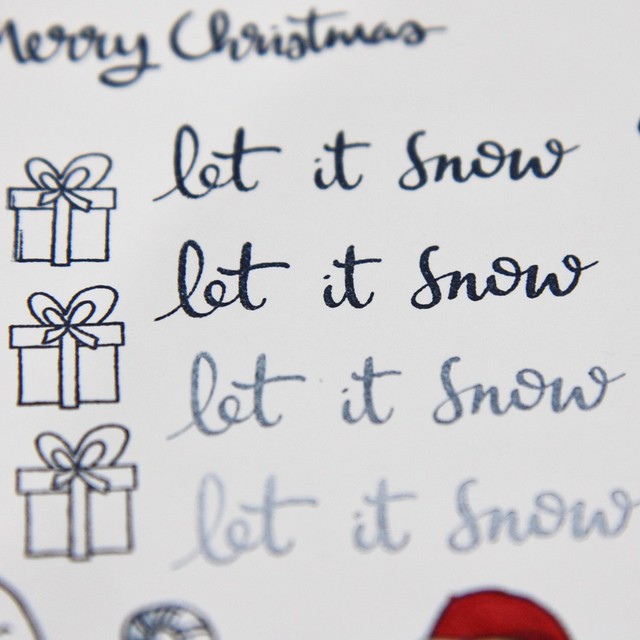 Merry Christmas
let it snow
let it snow
let it snow
let it snow